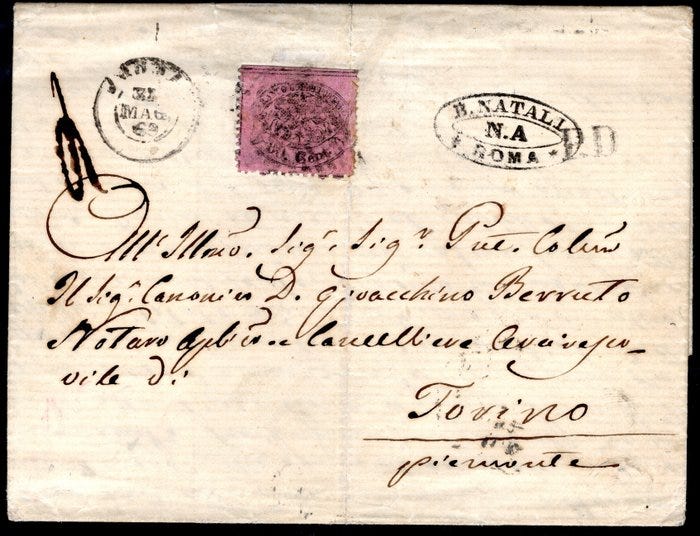 31
MAG
B. NATALI
N.A
ROMA
P.D
Cent
All' Illmo. Sigr. Sigr.
Il Sigr. Canonico D. Gioacchino Berruto
Notaro e Cancelliere Arcivesco-
vile di
Torino
piemonte